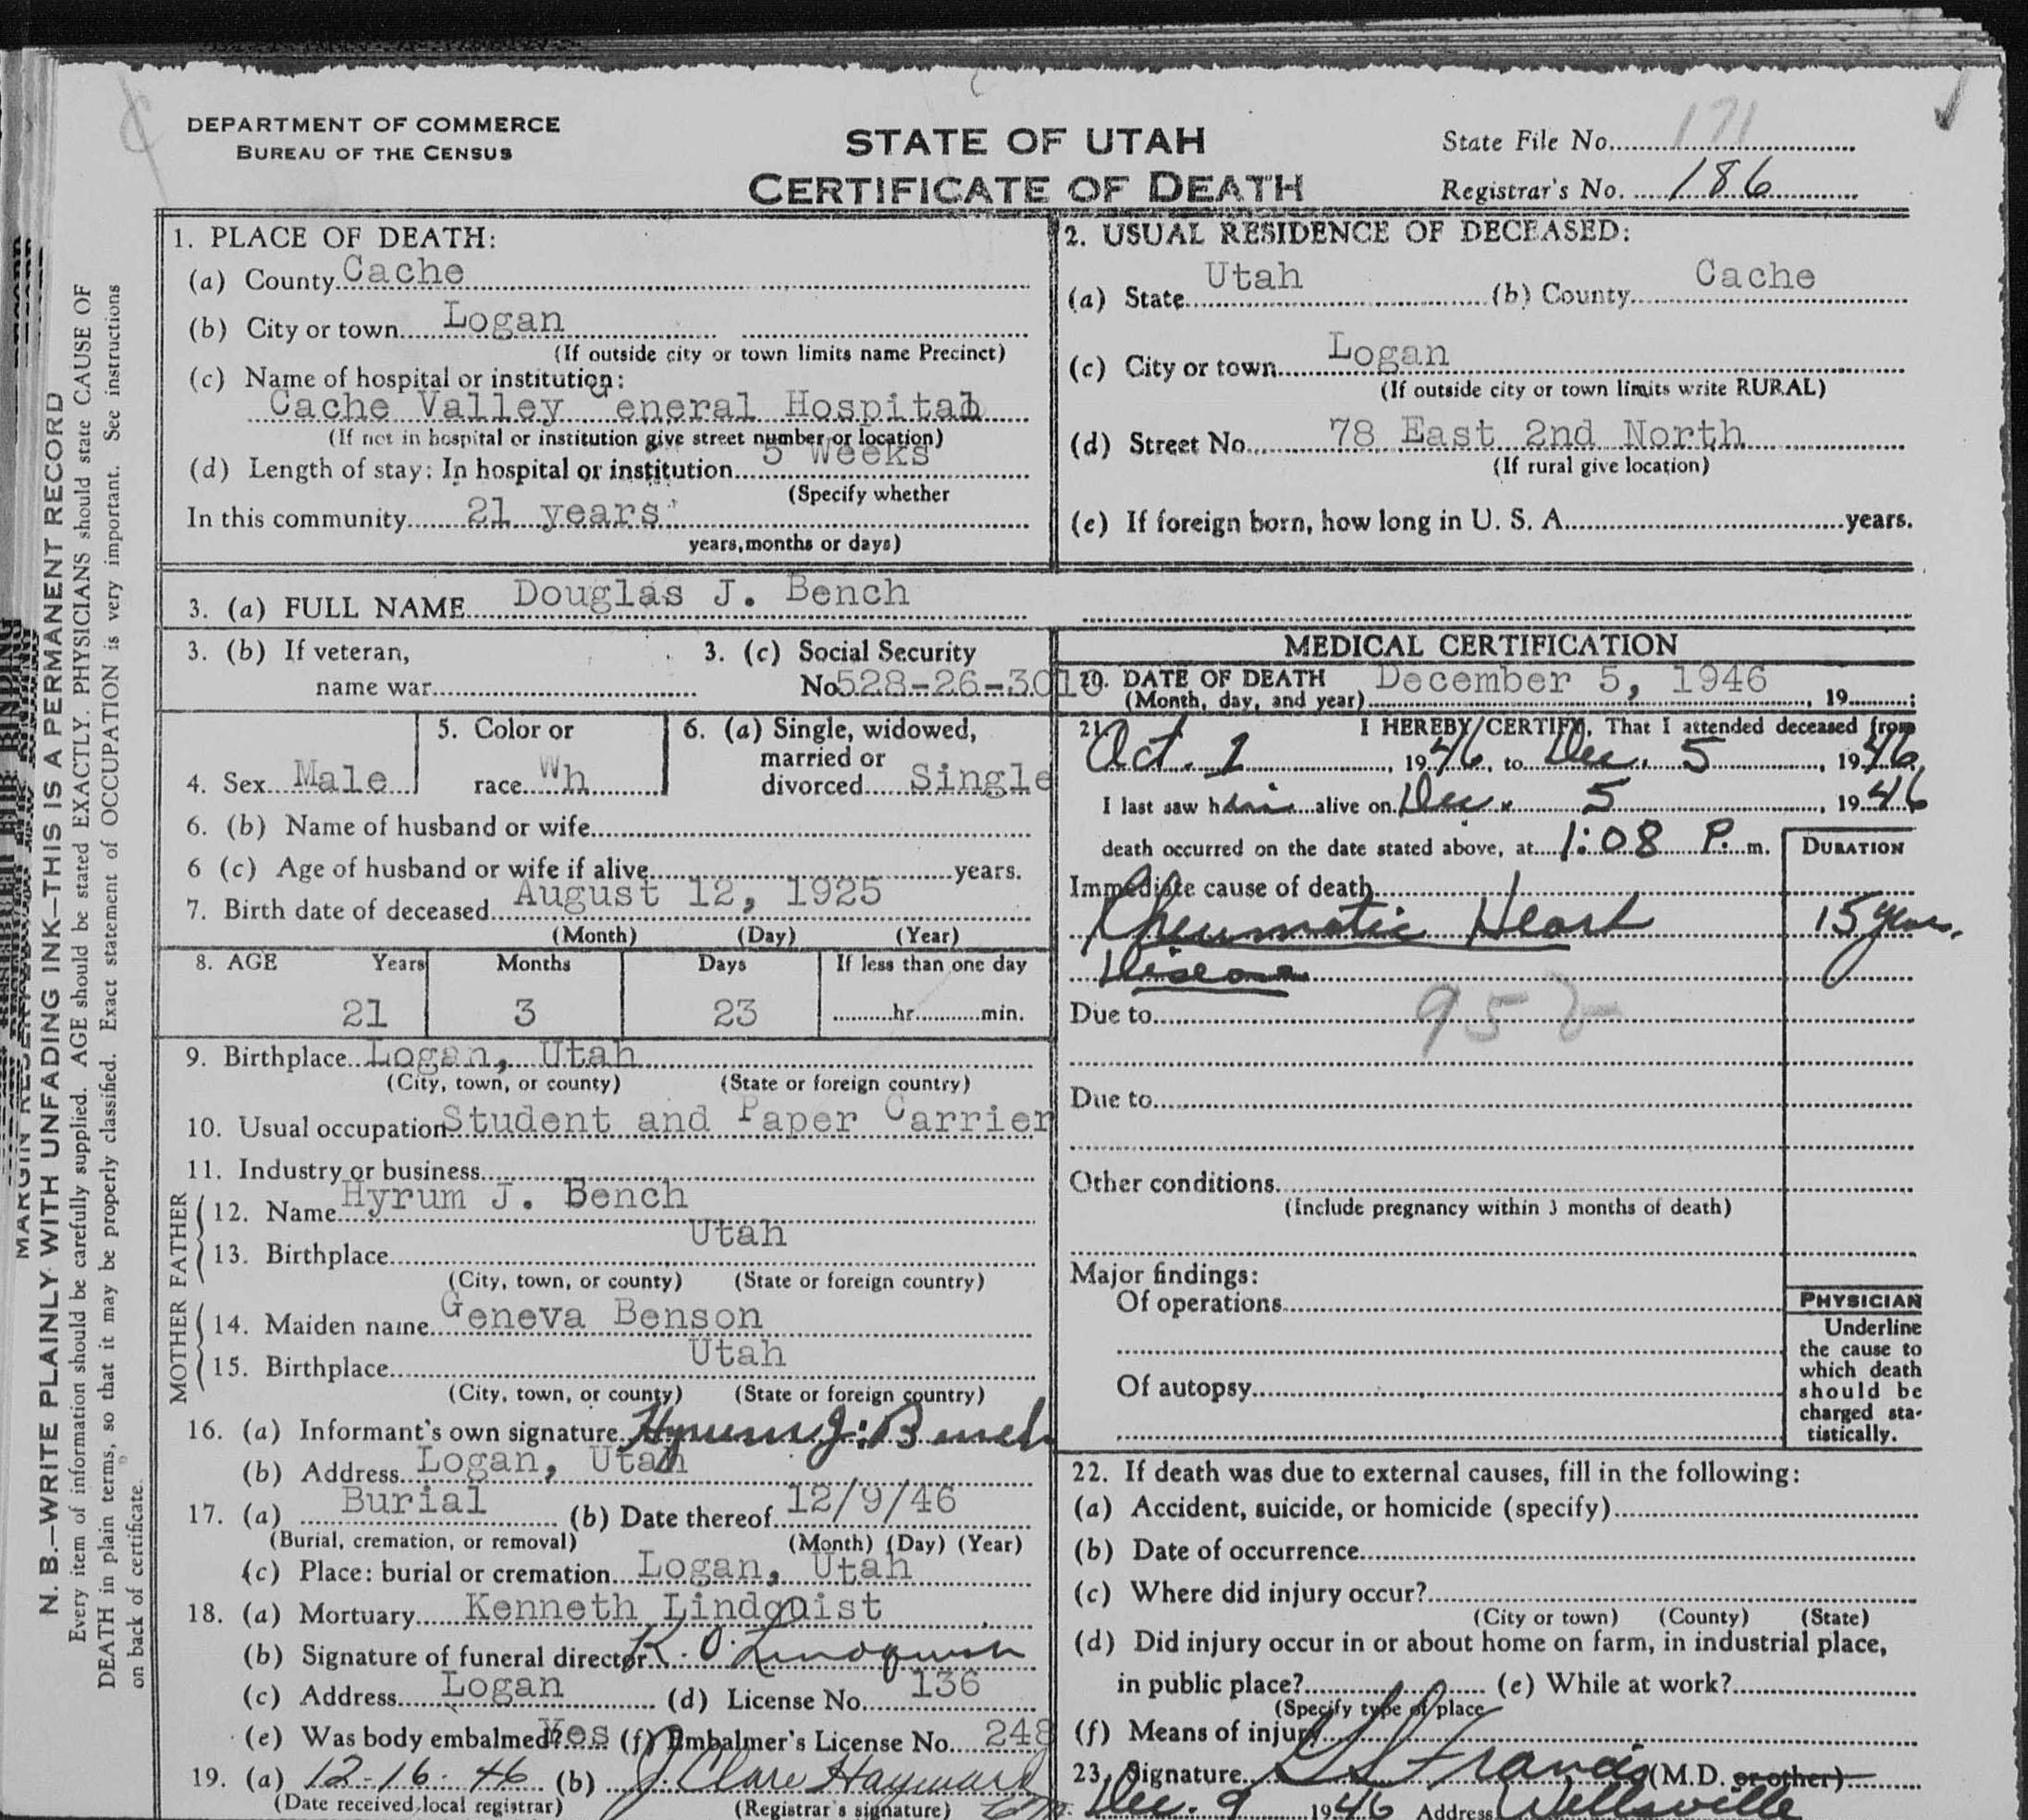 DEPARTMENT OF COMMERCE
BUREAU OF THE CENSUS
STATE OF UTAH
CERTIFICATE OF DEATH
State File No. 171
Registrar's No. 186
N. B.—WRITE PLAINLY WITH UNFADING INK—THIS IS A PERMANENT RECORD
Every item of information should be carefully supplied. AGE should be stated EXACTLY. PHYSICIANS should state CAUSE OF
DEATH in plain terms, so that it may be properly classified. Exact statement of OCCUPATION is very important. See instructions
on back of certificate.
1. PLACE OF DEATH:
(a) County Cache
(b) City or town Logan
(If outside city or town limits name Precinct)
(c) Name of hospital or institution:
Cache Valley General Hospital
(If not in hospital or institution give street number or location)
(d) Length of stay: In hospital or institution 5 Weeks
(Specify whether
In this community 21 years
years, months or days)
2. USUAL RESIDENCE OF DECEASED:
(a) State Utah (b) County Cache
(c) City or town Logan
(If outside city or town limits write RURAL)
(d) Street No. 78 East 2nd North
(If rural give location)
(e) If foreign born, how long in U. S. A. years.
3. (a) FULL NAME Douglas J. Bench
3. (b) If veteran,
name war
3. (c) Social Security
No. 528-26-3010
4. Sex Male
5. Color or
race Wh
6. (a) Single, widowed,
married or
divorced Single
6. (b) Name of husband or wife
6 (c) Age of husband or wife if alive years.
7. Birth date of deceased August 12, 1925
(Month) (Day) (Year)
8. AGE Years Months Days If less than one day
21 3 23 hr. min.
9. Birthplace Logan, Utah
(City, town, or county) (State or foreign country)
10. Usual occupation Student and Paper Carrier
11. Industry or business
FATHER
12. Name Hyrum J. Bench
13. Birthplace Utah
(City, town, or county) (State or foreign country)
MOTHER
14. Maiden name Geneva Benson
15. Birthplace Utah
(City, town, or county) (State or foreign country)
16. (a) Informant's own signature Hyrum J. Bench
(b) Address Logan, Utah
17. (a) Burial (b) Date thereof 12/9/46
(Burial, cremation, or removal) (Month) (Day) (Year)
(c) Place: burial or cremation Logan, Utah
18. (a) Mortuary Kenneth Lindquist
(b) Signature of funeral director K. O. Lindquist
(c) Address Logan (d) License No. 136
(e) Was body embalmed? Yes (f) Embalmer's License No. 248
19. (a) 12-16-46 (b) J. Clare Hayward
(Date received local registrar) (Registrar's signature)
MEDICAL CERTIFICATION
20. DATE OF DEATH December 5, 1946
(Month, day, and year) , 19 ;
21. I HEREBY CERTIFY, That I attended deceased from
Oct. 1, 1946, to Dec. 5, 1946,
I last saw him alive on Dec. 5, 1946
death occurred on the date stated above, at 1:08 P. m.
DURATION
Immediate cause of death
Rheumatic Heart 15 years.
Disease
Due to
Due to
Other conditions
(Include pregnancy within 3 months of death)
Major findings:
Of operations
Of autopsy
PHYSICIAN
Underline
the cause to
which death
should be
charged sta-
tistically.
22. If death was due to external causes, fill in the following:
(a) Accident, suicide, or homicide (specify)
(b) Date of occurrence
(c) Where did injury occur?
(City or town) (County) (State)
(d) Did injury occur in or about home on farm, in industrial place,
in public place? (e) While at work?
(Specify type of place
(f) Means of injury
23. Signature Francis (M.D. or other)
Dec. 9 1946 Address Wellsville